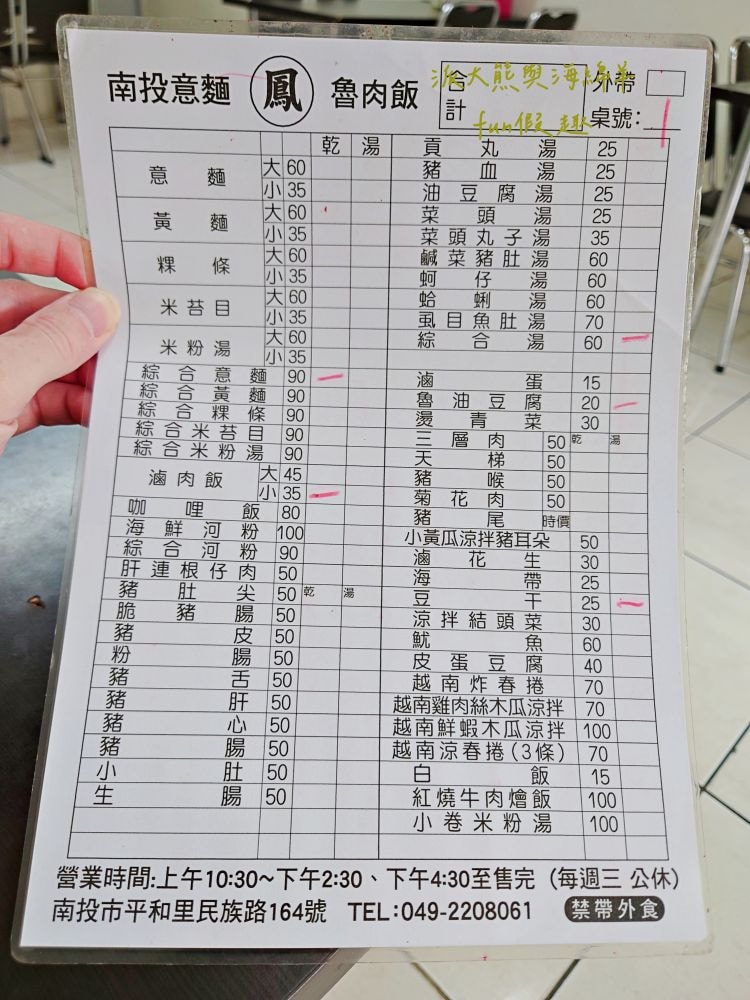 南投意麵 鳳 魯肉飯
合計
外帶
桌號：
派大熊與海綿羊
fun假趣
乾 湯
意麵 大 60
小 35
黃麵 大 60
小 35
粿條 大 60
小 35
米苔目 大 60
小 35
米粉湯 大 60
小 35
綜合意麵 90
綜合黃麵 90
綜合粿條 90
綜合米苔目 90
綜合米粉湯 90
滷肉飯 大 45
小 35
咖哩飯 80
海鮮河粉 100
綜合河粉 90
肝連根仔肉 50
豬肚尖 50 乾 湯
脆豬腸 50
豬皮 50
粉腸 50
豬舌 50
豬肝 50
豬心 50
豬腸 50
小肚 50
生腸 50
貢丸湯 25
豬血湯 25
油豆腐湯 25
菜頭湯 25
菜頭丸子湯 35
鹹菜豬肚湯 60
蚵仔湯 60
蛤蜊湯 60
虱目魚肚湯 70
綜合湯 60
滷蛋 15
魯油豆腐 20
燙青菜 30
三層肉 50 乾 湯
天梯 50
豬喉 50
菊花肉 50
豬尾 時價
小黃瓜涼拌豬耳朵 50
滷花生 30
海帶 25
豆干 25
涼拌結頭菜 30
魷魚 60
皮蛋豆腐 40
越南炸春捲 70
越南雞肉絲木瓜涼拌 70
越南鮮蝦木瓜涼拌 100
越南涼春捲(3條) 70
白飯 15
紅燒牛肉燴飯 100
小卷米粉湯 100
營業時間:上午10:30~下午2:30、下午4:30至售完（每週三 公休）
南投市平和里民族路164號 TEL:049-2208061 禁帶外食